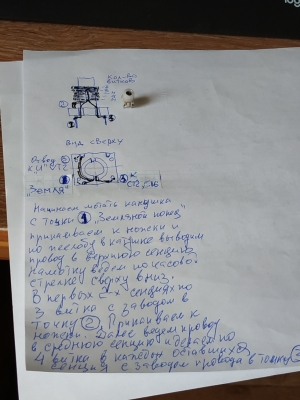 Кол-во
витков
Вид сверху
Отвод ②
"Земля"
Начинаем мотать катушку
с точки ① "Земляной"
припаиваем к ножки и
по каркасу выводим
провод в верхнюю секцию
намотку ведем по часовой
стрелке сверху вниз.
В первых 2-х секциях по
3 витка с заводом в
точку ②. Припаиваем к
ножки. Далее ведем провод
в среднюю секцию и делаем по
4 витка в каждой оставшихся
секции с заводом провода в точку ③